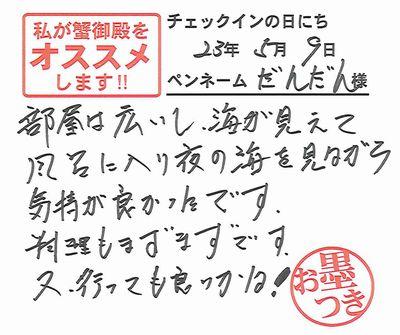 私が蟹御殿を
オススメ
します!!
チェックインの日にち
23年 5月 9日
ペンネーム だんだん様
部屋は広いし、海が見えて
風呂に入り夜の海を見ながら
気持が良かったです.
料理もまずまずです.
又、行っても良いかね!
お墨つき